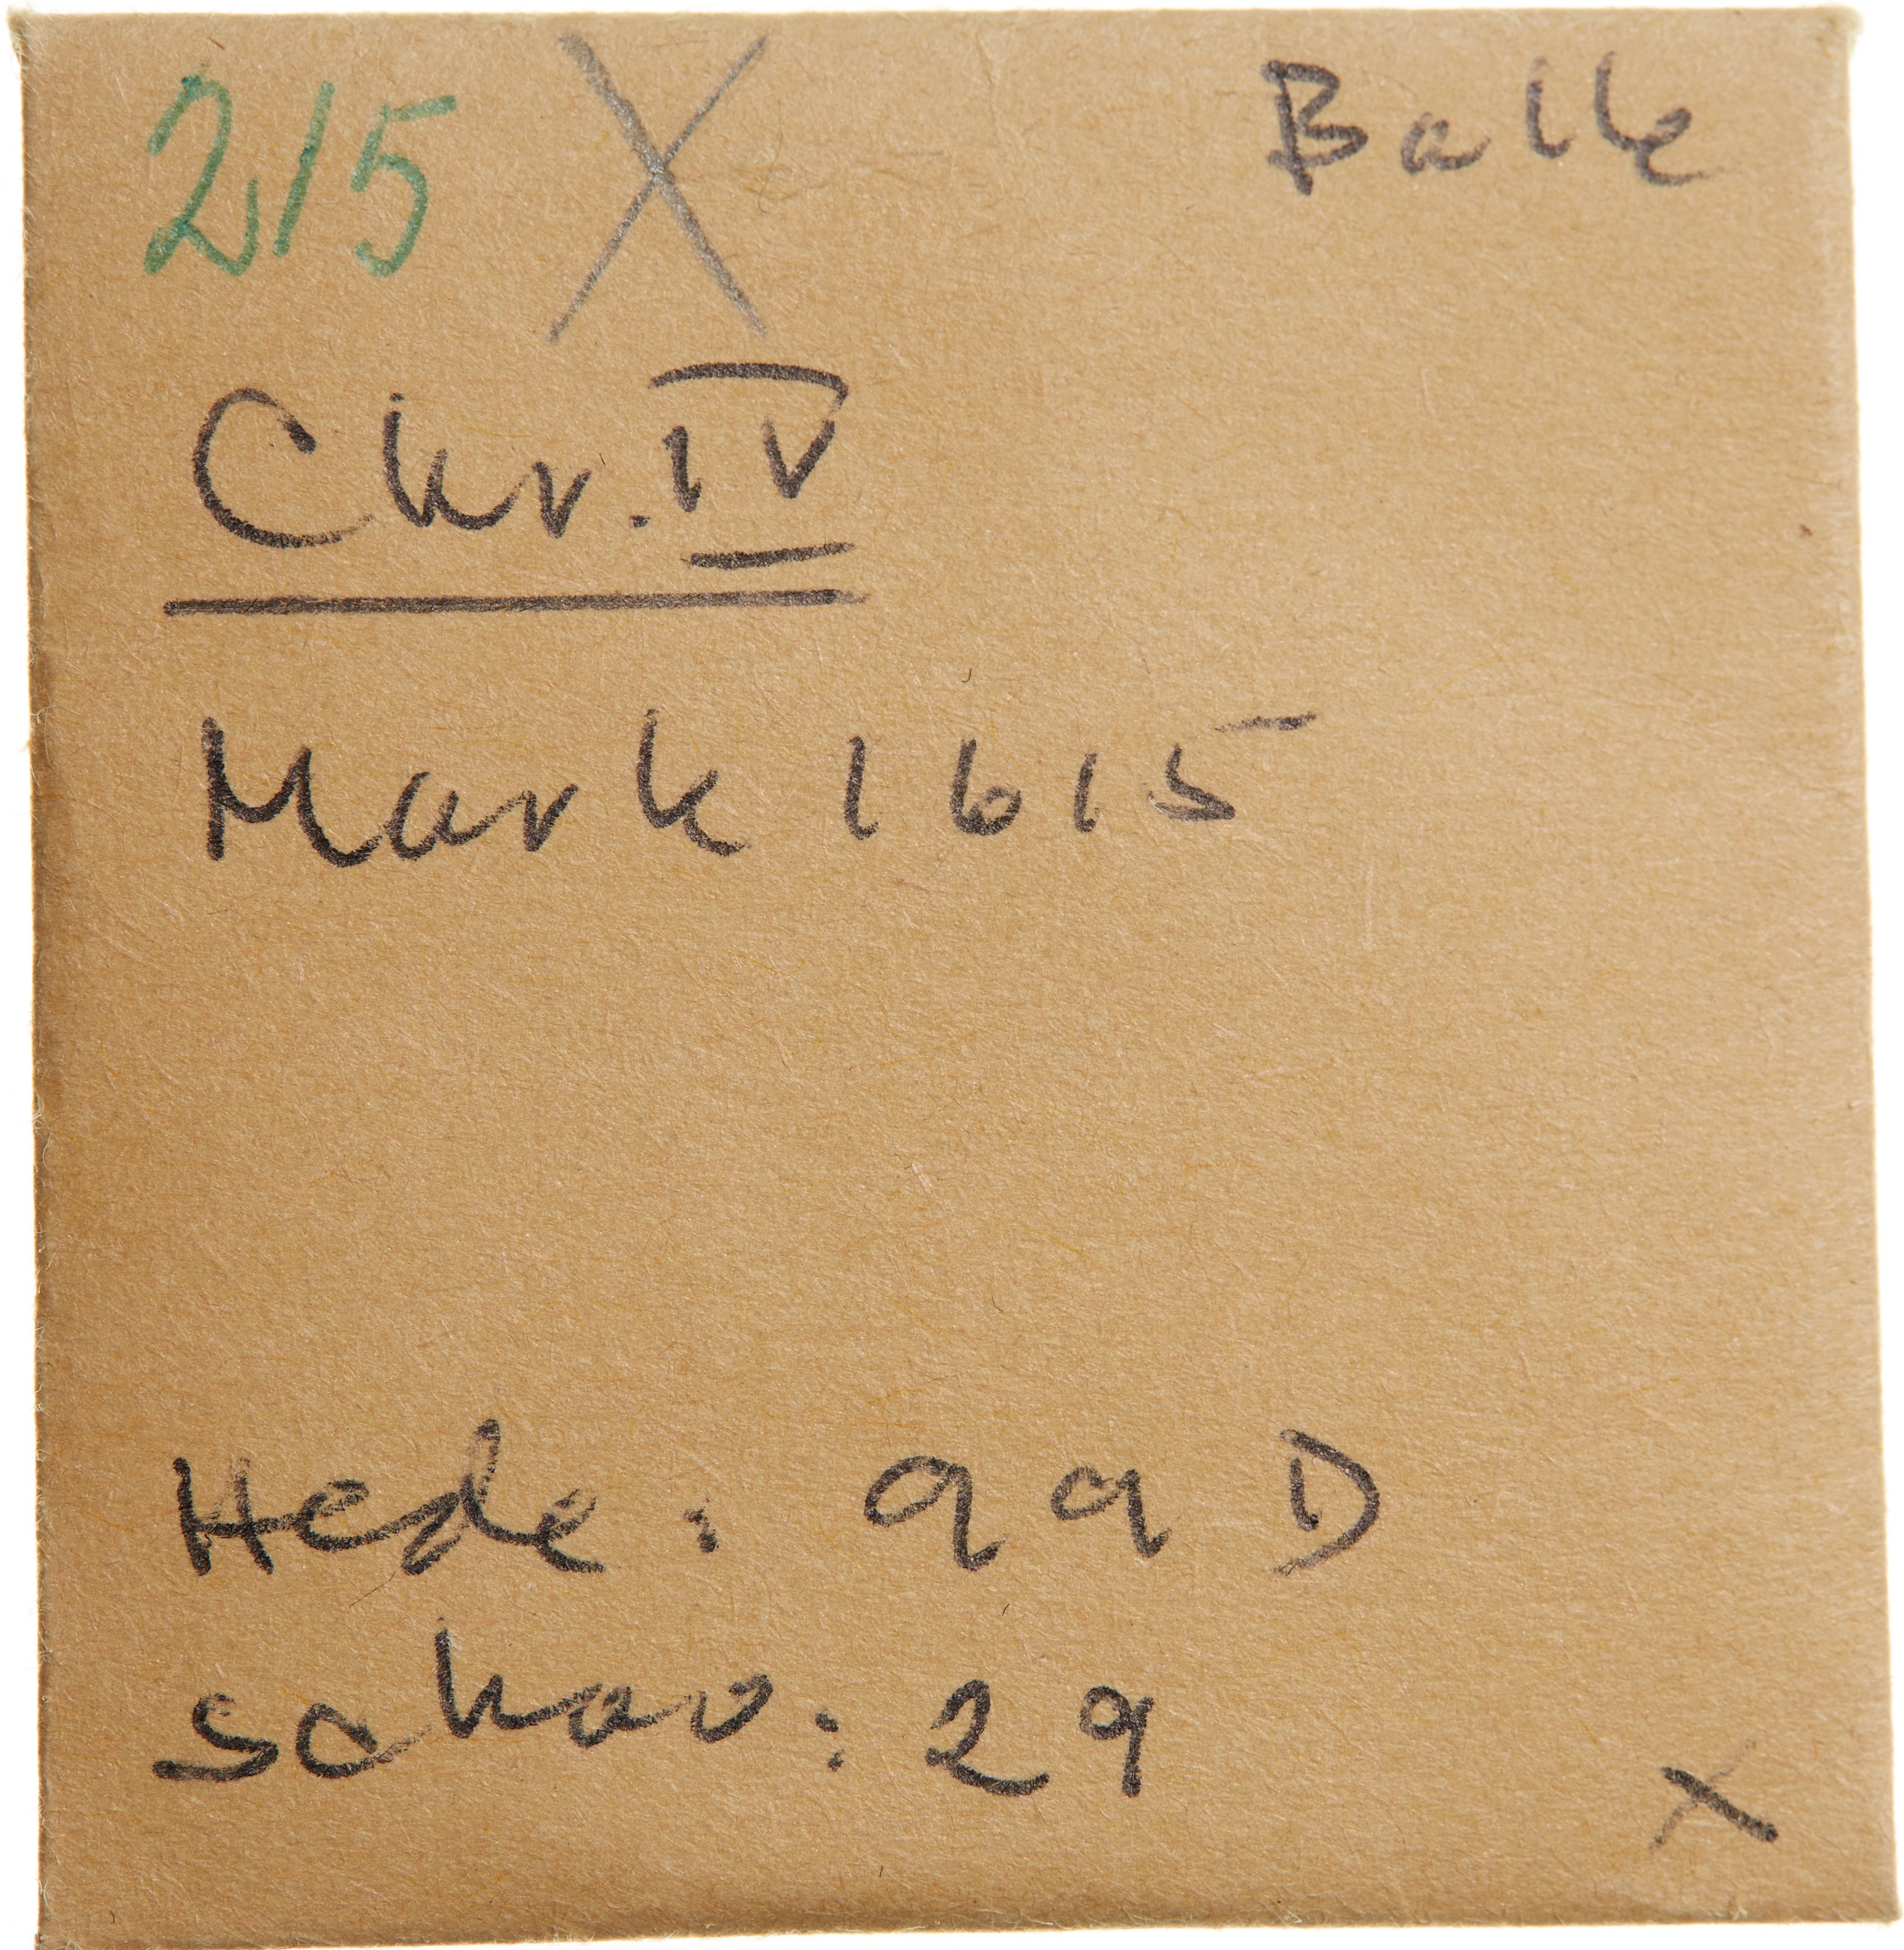 215 X Balle
Chr. IV
Mark 1615
Hede: 99 D
Schou: 29
X